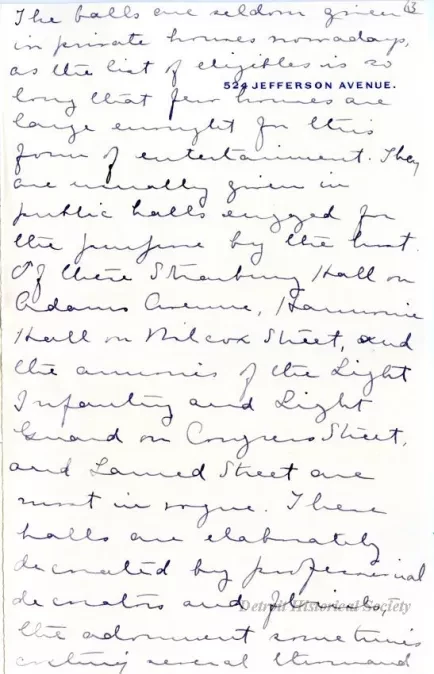 The balls are seldom given 63
in private houses nowadays,
as the list of eligibles is so
524 JEFFERSON AVENUE.
long that few homes are
large enought for this
form of entertainment. They
are usually given in
public halls engaged for
the purpose by the host.
Of these Strasburg Hall on
Adams Avenue, Harmonie
Hall on Wilcox Street, and
the armories of the Light
Infantry and Light
Guard on Congress Street,
and Larned Street are
most in vogue. These
halls are elaborately
decorated by professional
decorators and florists,
Detroit Historical Society
the adornment sometimes
costing several thousand